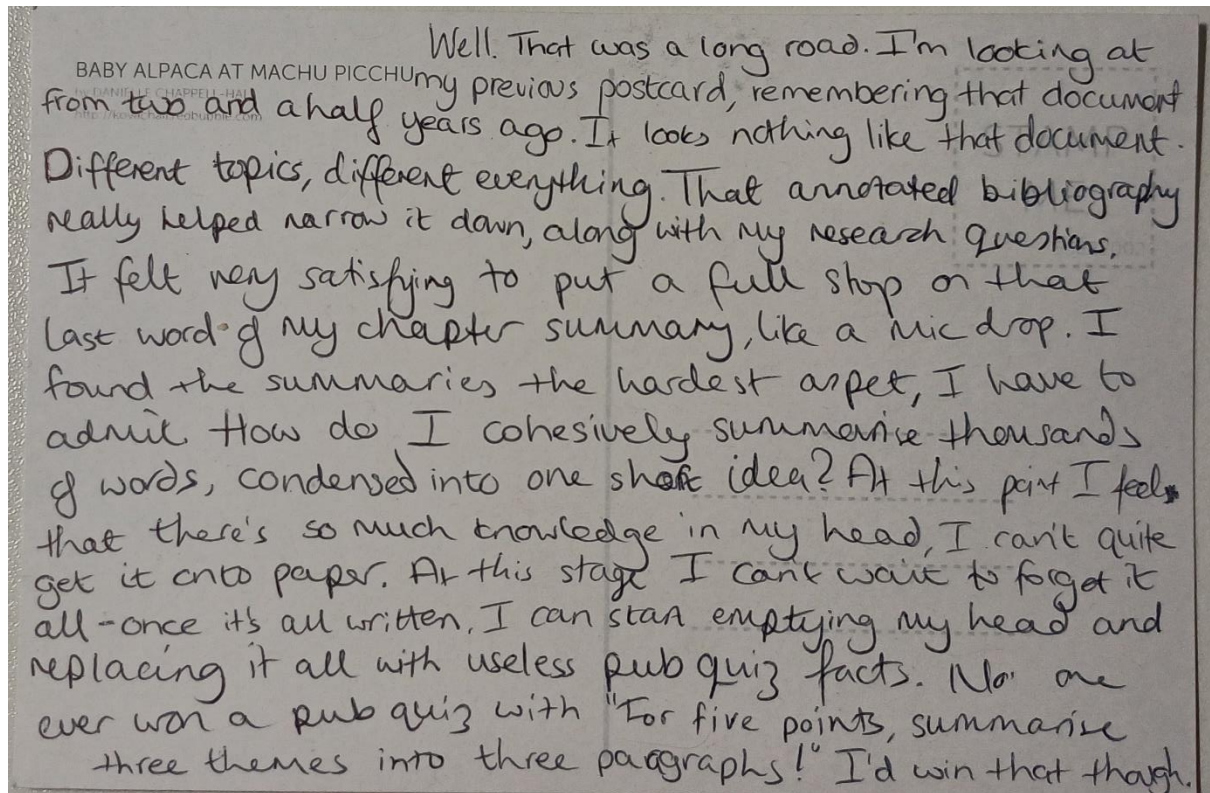 Well. That was a long road. I'm looking at
BABY ALPACA AT MACHU PICCHU my previous postcard, remembering that document
by DANIELLE CHAPPELL-HALL
from two and a half years ago. It looks nothing like that document.
Different topics, different everything. That annotated bibliography
really helped narrow it down, along with my research questions.
It felt very satisfying to put a full stop on that
last word of my chapter summary, like a mic drop. I
found the summaries the hardest aspet, I have to
admit. How do I cohesively summarise thousands
of words, condensed into one short idea? At this point I feel
that there's so much knowledge in my head, I can't quite
get it onto paper. At this stage I can't wait to forget it
all - once it's all written, I can start emptying my head and
replacing it all with useless pub quiz facts. No one
ever won a pub quiz with "For five points, summarise
three themes into three paragraphs!" I'd win that though.